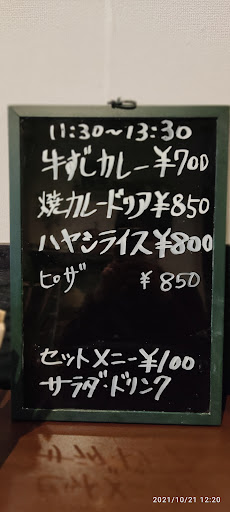 11:30～13:30
牛すじカレー ¥700
焼カレードリア ¥850
ハヤシライス ¥800
ピザ ¥850
セットメニー ¥100
サラダ・ドリンク
2021/10/21 12:20